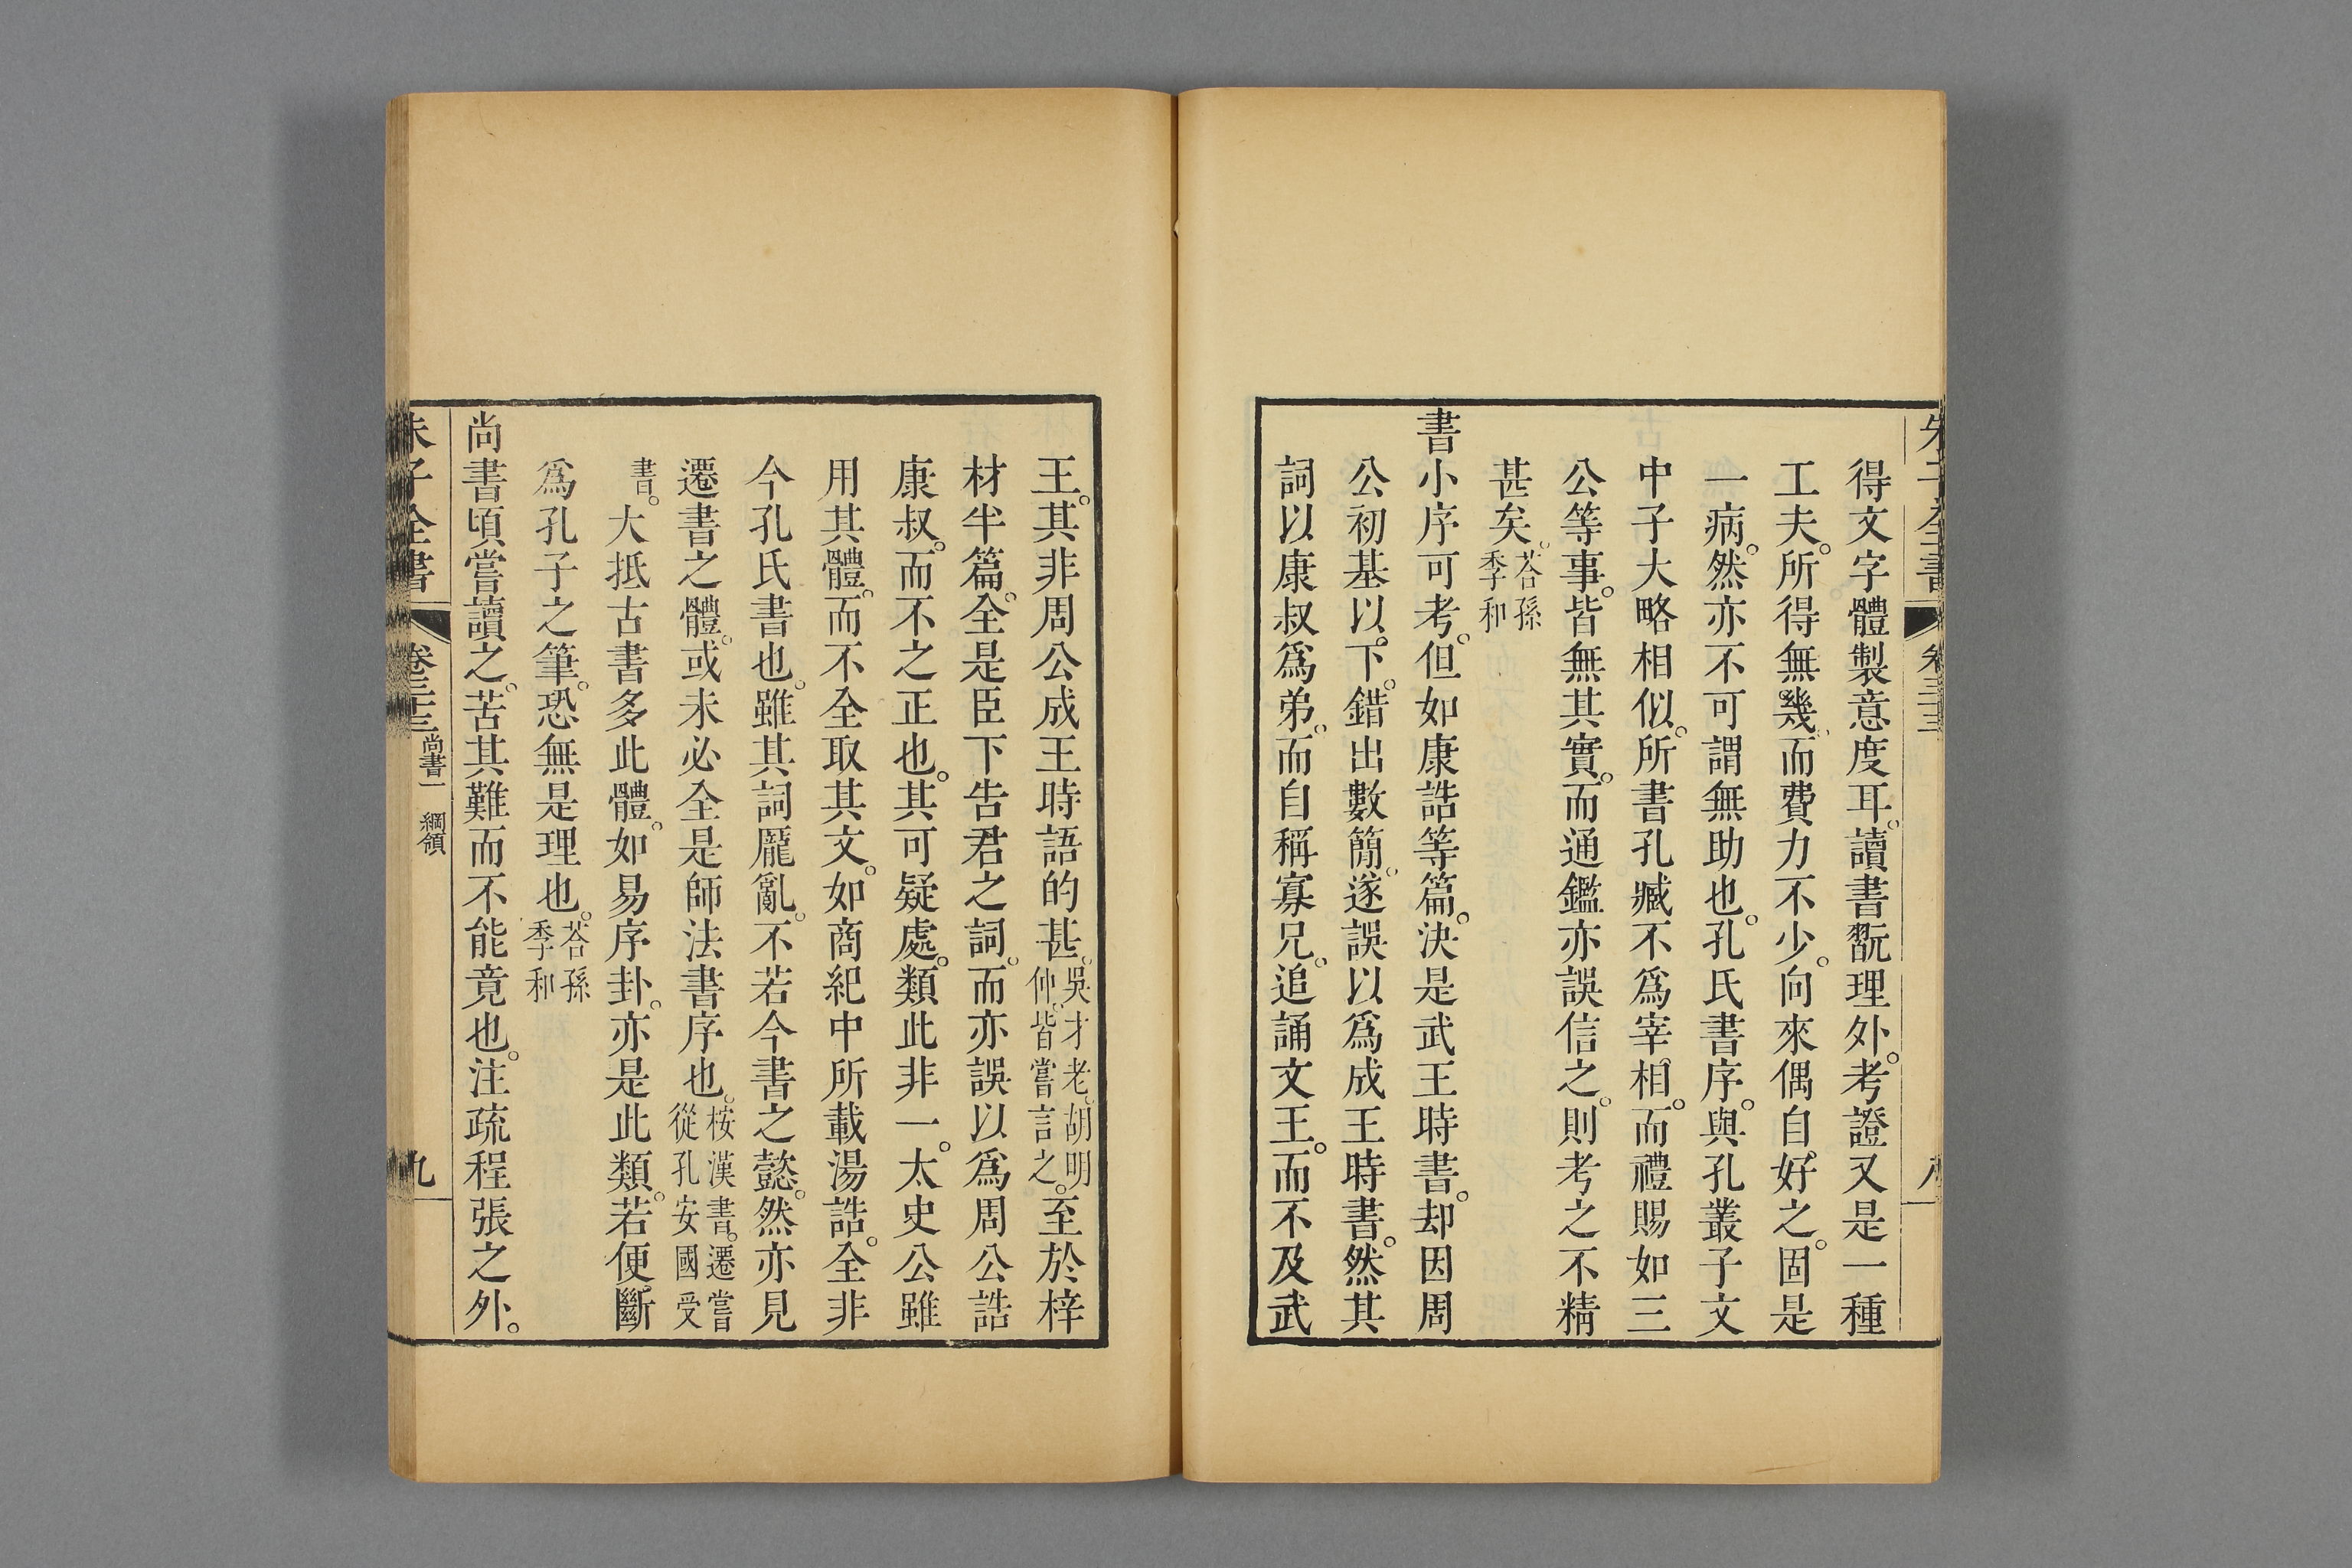 得文字體製意度耳。讀書翫理外。考證又是一種
工夫。所得無幾。而費力不少。向來偶自好之。固是
一病。然亦不可謂無助也。孔氏書序。與孔叢子文
中子大略相似。所書孔臧不爲宰相。而禮賜如三
公等事。皆無其實。而通鑑亦誤信之。則考之不精
甚矣。荅孫季和
書小序可考。但如康誥等篇。決是武王時書。却因周
公初基以。下。錯出數簡。遂誤以爲成王時書。然其
詞以康叔爲弟。而自稱寡兄。追誦文王。而不及武
王。其非周公成王時語的甚。吳才老。胡明仲。皆嘗言之。至於梓
材半篇。全是臣下告君之詞。而亦誤以爲周公誥
康叔。而不之正也。其可疑處。類此非一。太史公雖
用其體。而不全取其文。如商紀中所載湯誥。全非
今孔氏書也。雖其詞龐亂。不若今書之懿。然亦見
遷書之體。或未必全是師法書序也。桉漢書。遷嘗從孔安國受
書。大抵古書多此體。如易序卦。亦是此類。若便斷
爲孔子之筆。恐無是理也。荅孫季和
尚書頃嘗讀之。苦其難而不能竟也。注疏程張之外。
朱子全書 卷三十三 尚書一 綱領 九